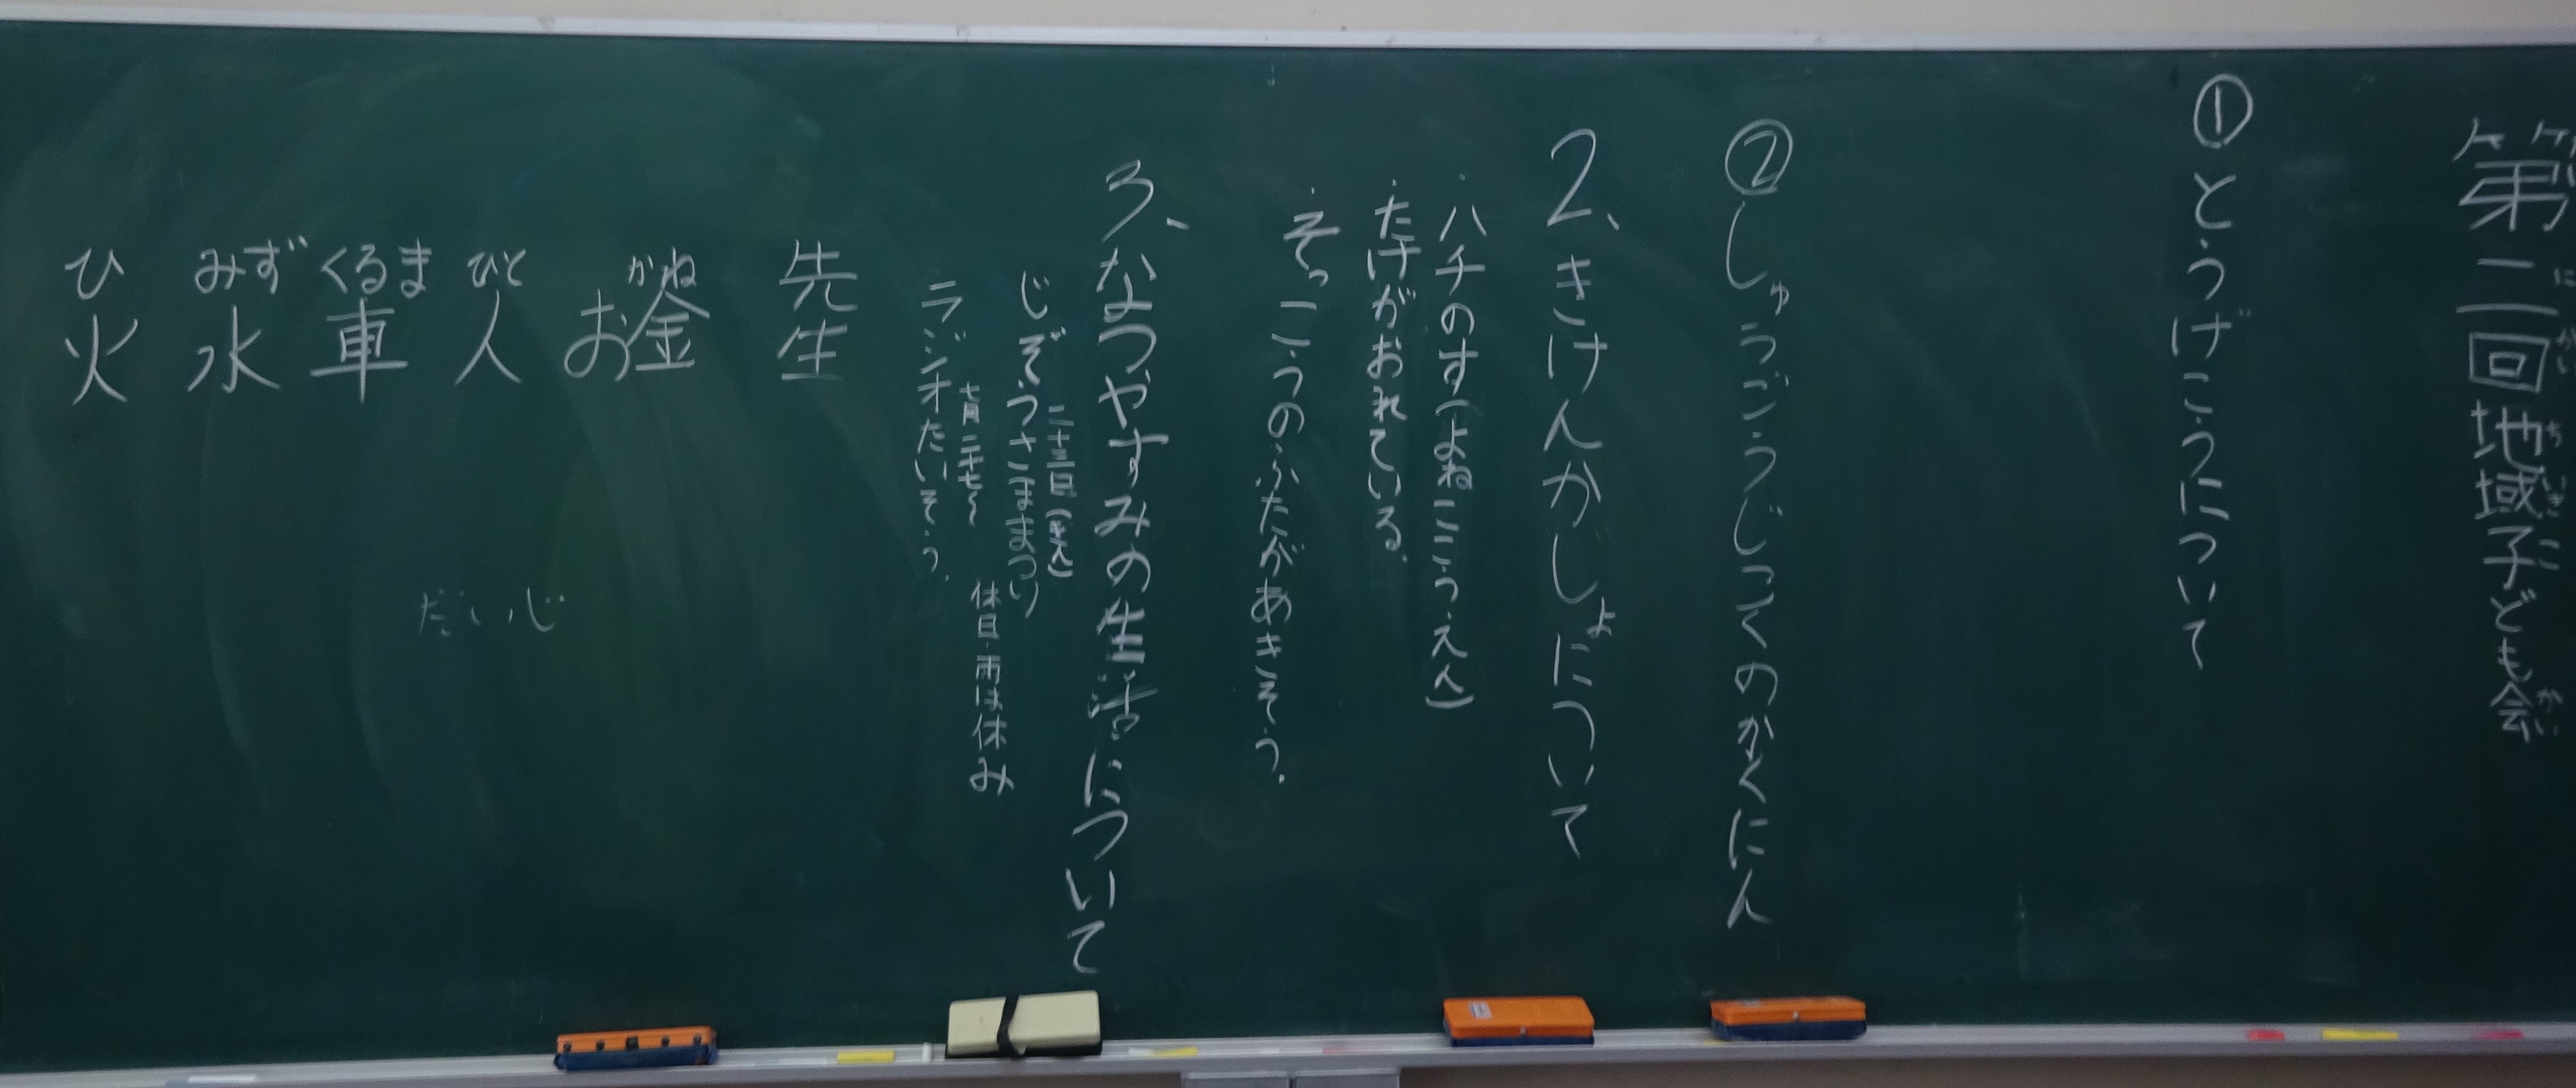 第二回地域子ども会
にかいちいきこかい
①とうげこうについて
②しゅうごうじこくのかくにん
2、きけんかしょについて
・ハチのす(よねここうえん)
・たけがおれている。
・そっこうのふたがあきそう。
3、なつやすみの生活について
二十三日(きん)
じぞうさままつり
七月二十七〜 休日・雨は休み
ラジオたいそう。
先生
かね
お金
ひと
人
くるま
車
みず
水
ひ
火
だいじ